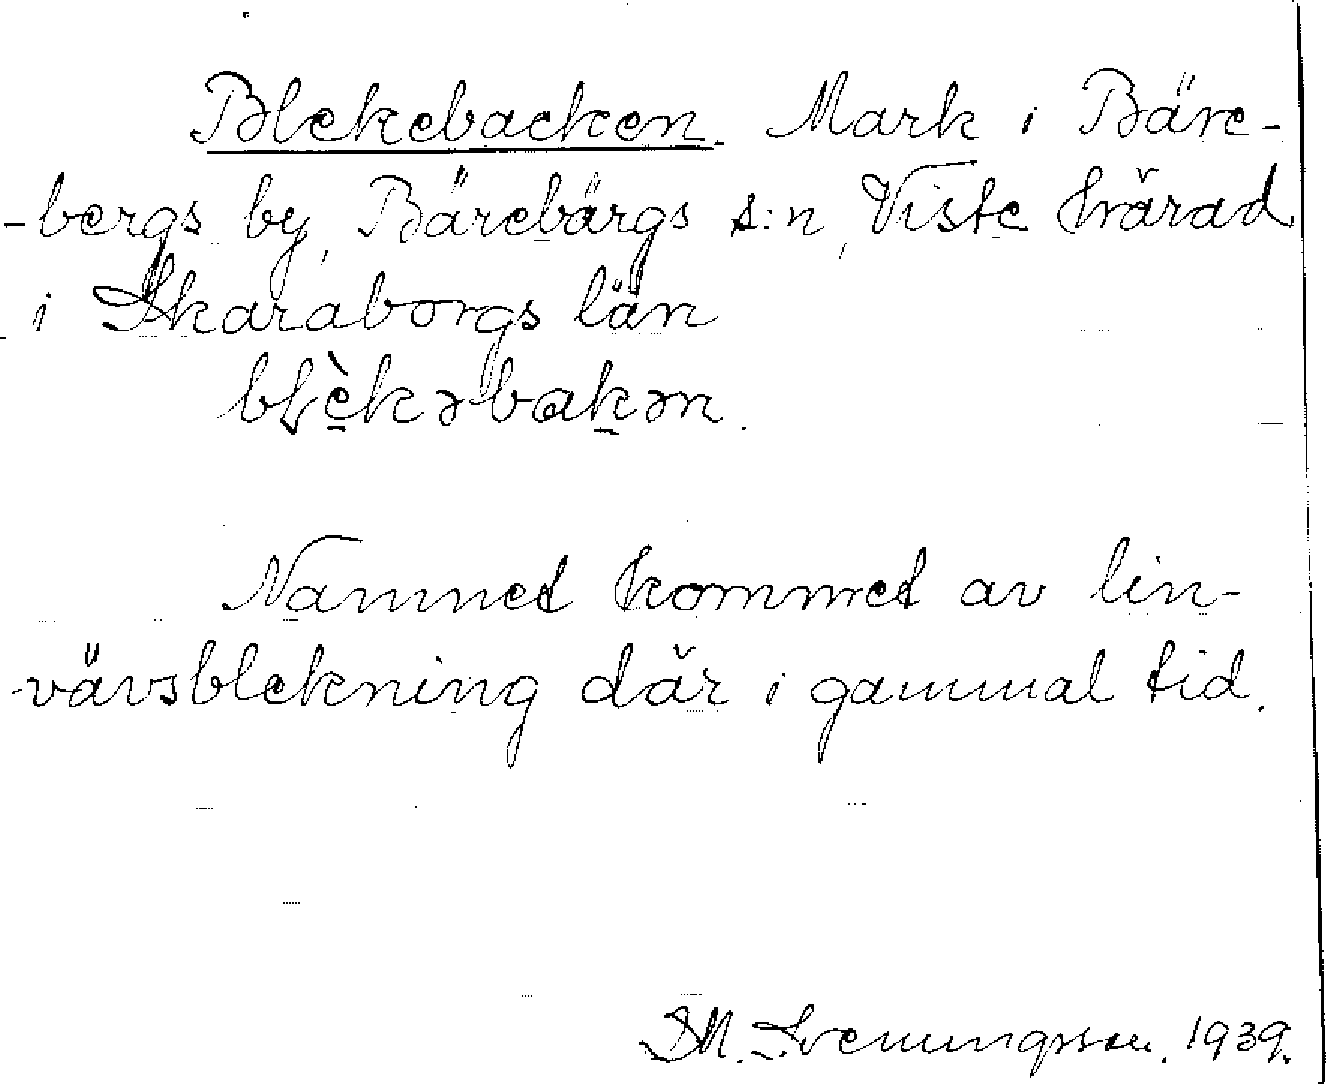 Blekebacken. Mark i Bäre-
-bergs by, Bärebärgs s:n, Viste härad
i Skaraborgs län
blèkəbakən.
Namnet kommet av lin-
-vävsblekning där i gammal tid.
S.M. Svenningsson. 1939.